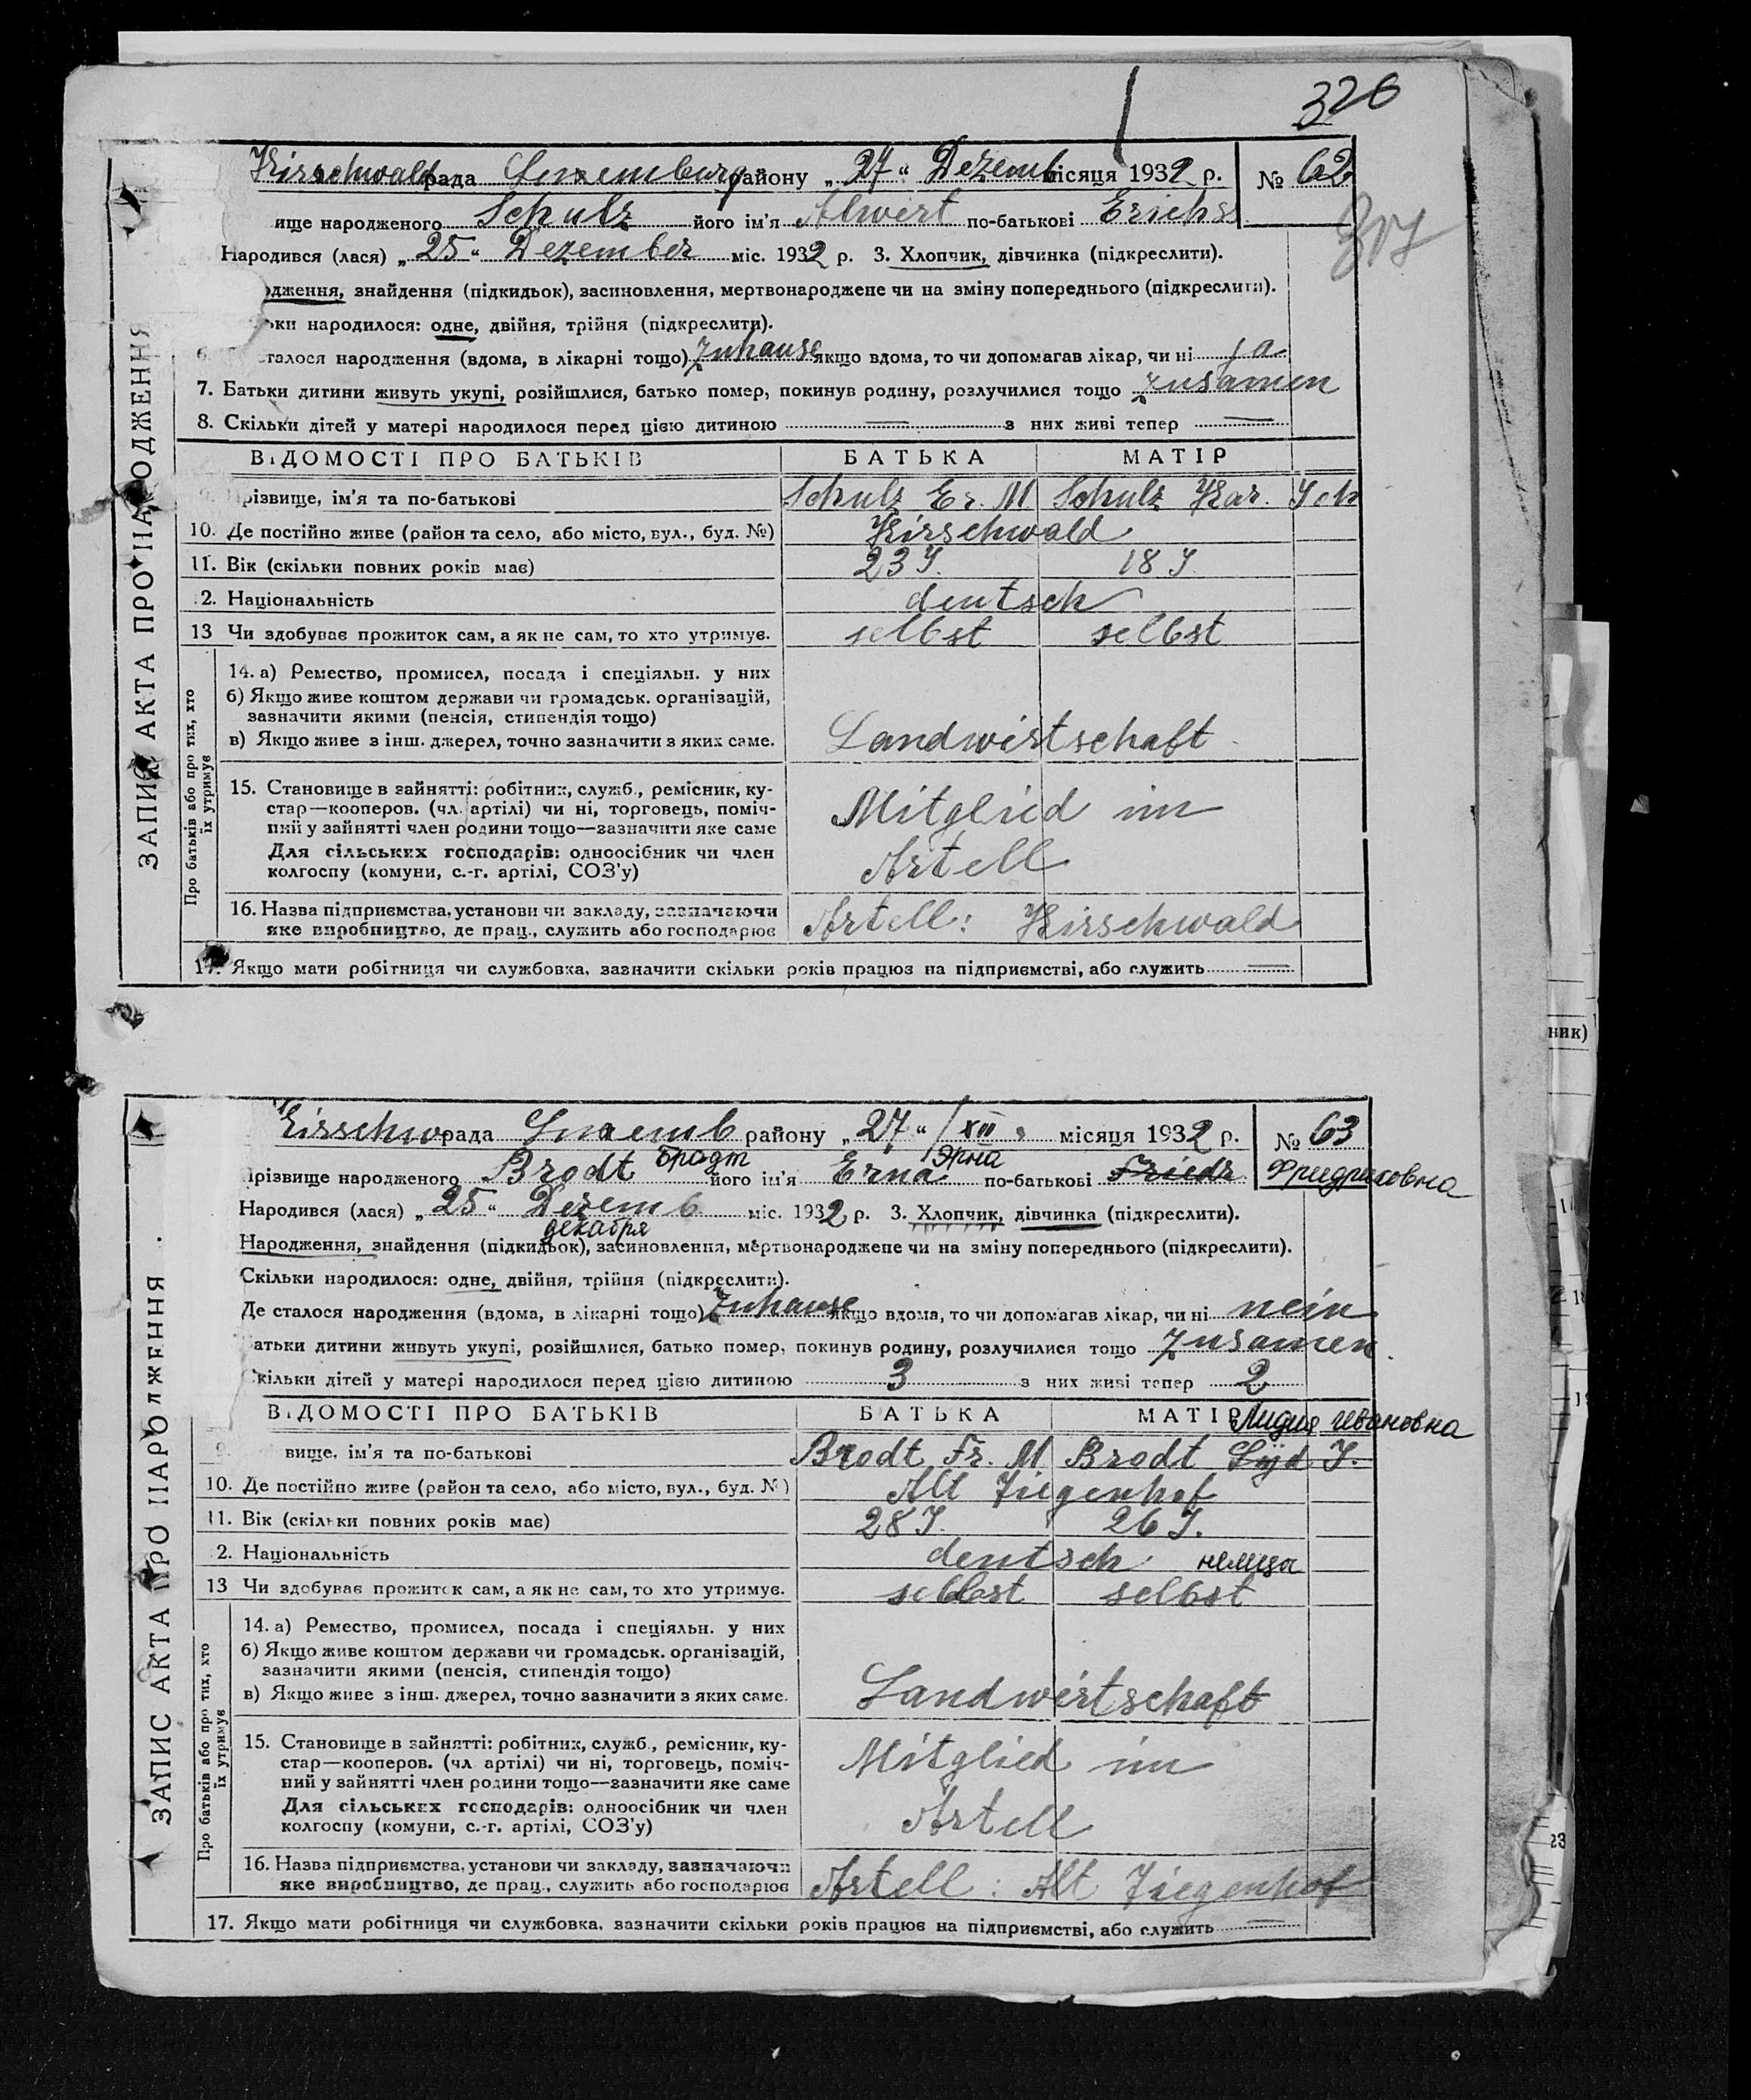 326
Kirschwald рада Luxemburg району „27“ Dezemb місяця 1932 р. № 62
ище народженого Schulz його ім'я Alwert по-батькові Erichs
Народився (лася) „25“ Dezember міс. 1932 р. 3. Хлопчик, дівчинка (підкреслити).
дження, знайдення (підкидьок), засиновлення, мертвонароджене чи на зміну попереднього (підкреслити).
ьки народилося: одне, двійня, трійня (підкреслити).
6. сталося народження (вдома, в лікарні тощо) Zuhause якщо вдома, то чи допомагав лікар, чи ні ja
7. Батьки дитини живуть укупі, розійшлися, батько помер, покинув родину, розлучилися тощо zusamen
8. Скільки дітей у матері народилося перед цією дитиною — з них живі тепер —
ВІДОМОСТІ ПРО БАТЬКІВ БАТЬКА МАТІР
9. Прізвище, ім'я та по-батькові Schulz Er. M Schulz Kar. Joh
10. Де постійно живе (район та село, або місто, вул., буд. №) Kirschwald
11. Вік (скільки повних років має) 23 J. 18 J
2. Національність deutsch
13 Чи здобуває прожиток сам, а як не сам, то хто утримує. selbst selbst
ЗАПИС АКТА ПРО НАРОДЖЕННЯ
Про батьків або про тих, хто
їх утримує
14. а) Ремество, промисел, посада і спеціяльн. у них
б) Якщо живе коштом держави чи громадськ. організацій,
зазначити якими (пенсія, стипендія тощо)
в) Якщо живе з інш. джерел, точно зазначити з яких саме. Landwirtschaft
15. Становище в зайнятті: робітник, служб., ремісник, ку-
стар—кооперов. (чл. артілі) чи ні, торговець, поміч-
ний у зайнятті член родини тощо—зазначити яке саме Mitglied im
Для сільських господарів: одноосібник чи член
колгоспу (комуни, с.-г. артілі, СОЗ'у) Artell
16. Назва підприємства, установи чи закладу, зазначаючи
яке виробництво, де прац., служить або господарює Artell: Kirschwald
17. Якщо мати робітниця чи службовка, зазначити скільки років працює на підприємстві, або служить —
Kirschw рада Luxemb району „27“ XII місяця 1932 р. № 63
Прізвище народженого Brodt Бродт його ім'я Erna Эрна по-батькові Friedr Фридриховна
Народився (лася) „25“ Dezemb міс. 1932 р. 3. Хлопчик, дівчинка (підкреслити).
декабря
Народження, знайдення (підкидьок), засиновлення, мертвонароджене чи на зміну попереднього (підкреслити).
Скільки народилося: одне, двійня, трійня (підкреслити).
Де сталося народження (вдома, в лікарні тощо) Zuhause якщо вдома, то чи допомагав лікар, чи ні nein
атьки дитини живуть укупі, розійшлися, батько помер, покинув родину, розлучилися тощо Zusamen.
Скільки дітей у матері народилося перед цією дитиною 3 з них живі тепер 2
ВІДОМОСТІ ПРО БАТЬКІВ БАТЬКА МАТІР Лидия Ивановна
9. вище, ім'я та по-батькові Brodt Fr. M Brodt Lyd J.
10. Де постійно живе (район та село, або місто, вул., буд. №) Alt Ziegenhof
11. Вік (скільки повних років має) 28 J. 26 J.
2. Національність deutsch немца
13 Чи здобуває прожиток сам, а як не сам, то хто утримує. selbst selbst
ЗАПИС АКТА ПРО НАРОДЖЕННЯ
Про батьків або про тих, хто
їх утримує
14. а) Ремество, промисел, посада і спеціяльн. у них
б) Якщо живе коштом держави чи громадськ. організацій,
зазначити якими (пенсія, стипендія тощо)
в) Якщо живе з інш. джерел, точно зазначити з яких саме. Landwirtschaft
15. Становище в зайнятті: робітник, служб., ремісник, ку-
стар—кооперов. (чл артілі) чи ні, торговець, поміч-
ний у зайнятті член родини тощо—зазначити яке саме Mitglied im
Для сільських господарів: одноосібник чи член
колгоспу (комуни, с.-г. артілі, СОЗ'у) Artell
16. Назва підприємства, установи чи закладу, зазначаючи
яке виробництво, де прац., служить або господарює Artell: Alt Ziegenhof
17. Якщо мати робітниця чи службовка, зазначити скільки років працює на підприємстві, або служить —
ник)
23